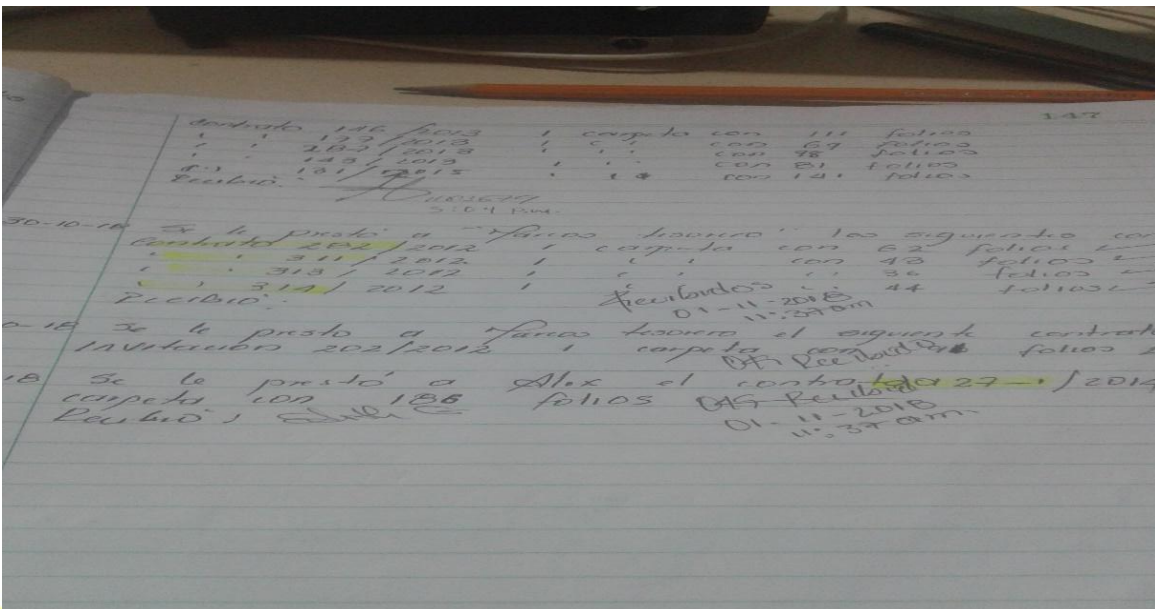 147
Contrato 146/2013 1 carpeta con 111 folios
" " /2013 1 " " con 67 folios
" " /2013 1 " " con 98 folios
" " 143/2013 " " con 81 folios
" 131/2015 " " con 141 folios
Recibió:
5:04 Pm.
30-10-18 Se le prestó a "Marcos tesorero" los siguientes con
Contrato 282/2012 1 carpeta con 62 folios
" " 311/2012 1 " " con 43 folios
" " 313/2012 1 " " " 36 folios
" " 314/2012 1 " " " 44 folios
Recibió: Recibidos
01-11-2018
11:37am
0-18 Se le presto a Marcos tesorero el siguiente contrato
Invitación 202/2012 1 carpeta con folios
OAG Recibido
18 Se le prestó a Alex el contrato 27-1/2014
carpeta con 186 folios OAG Recibido
Recibió:
01-11-2018
11:37am.